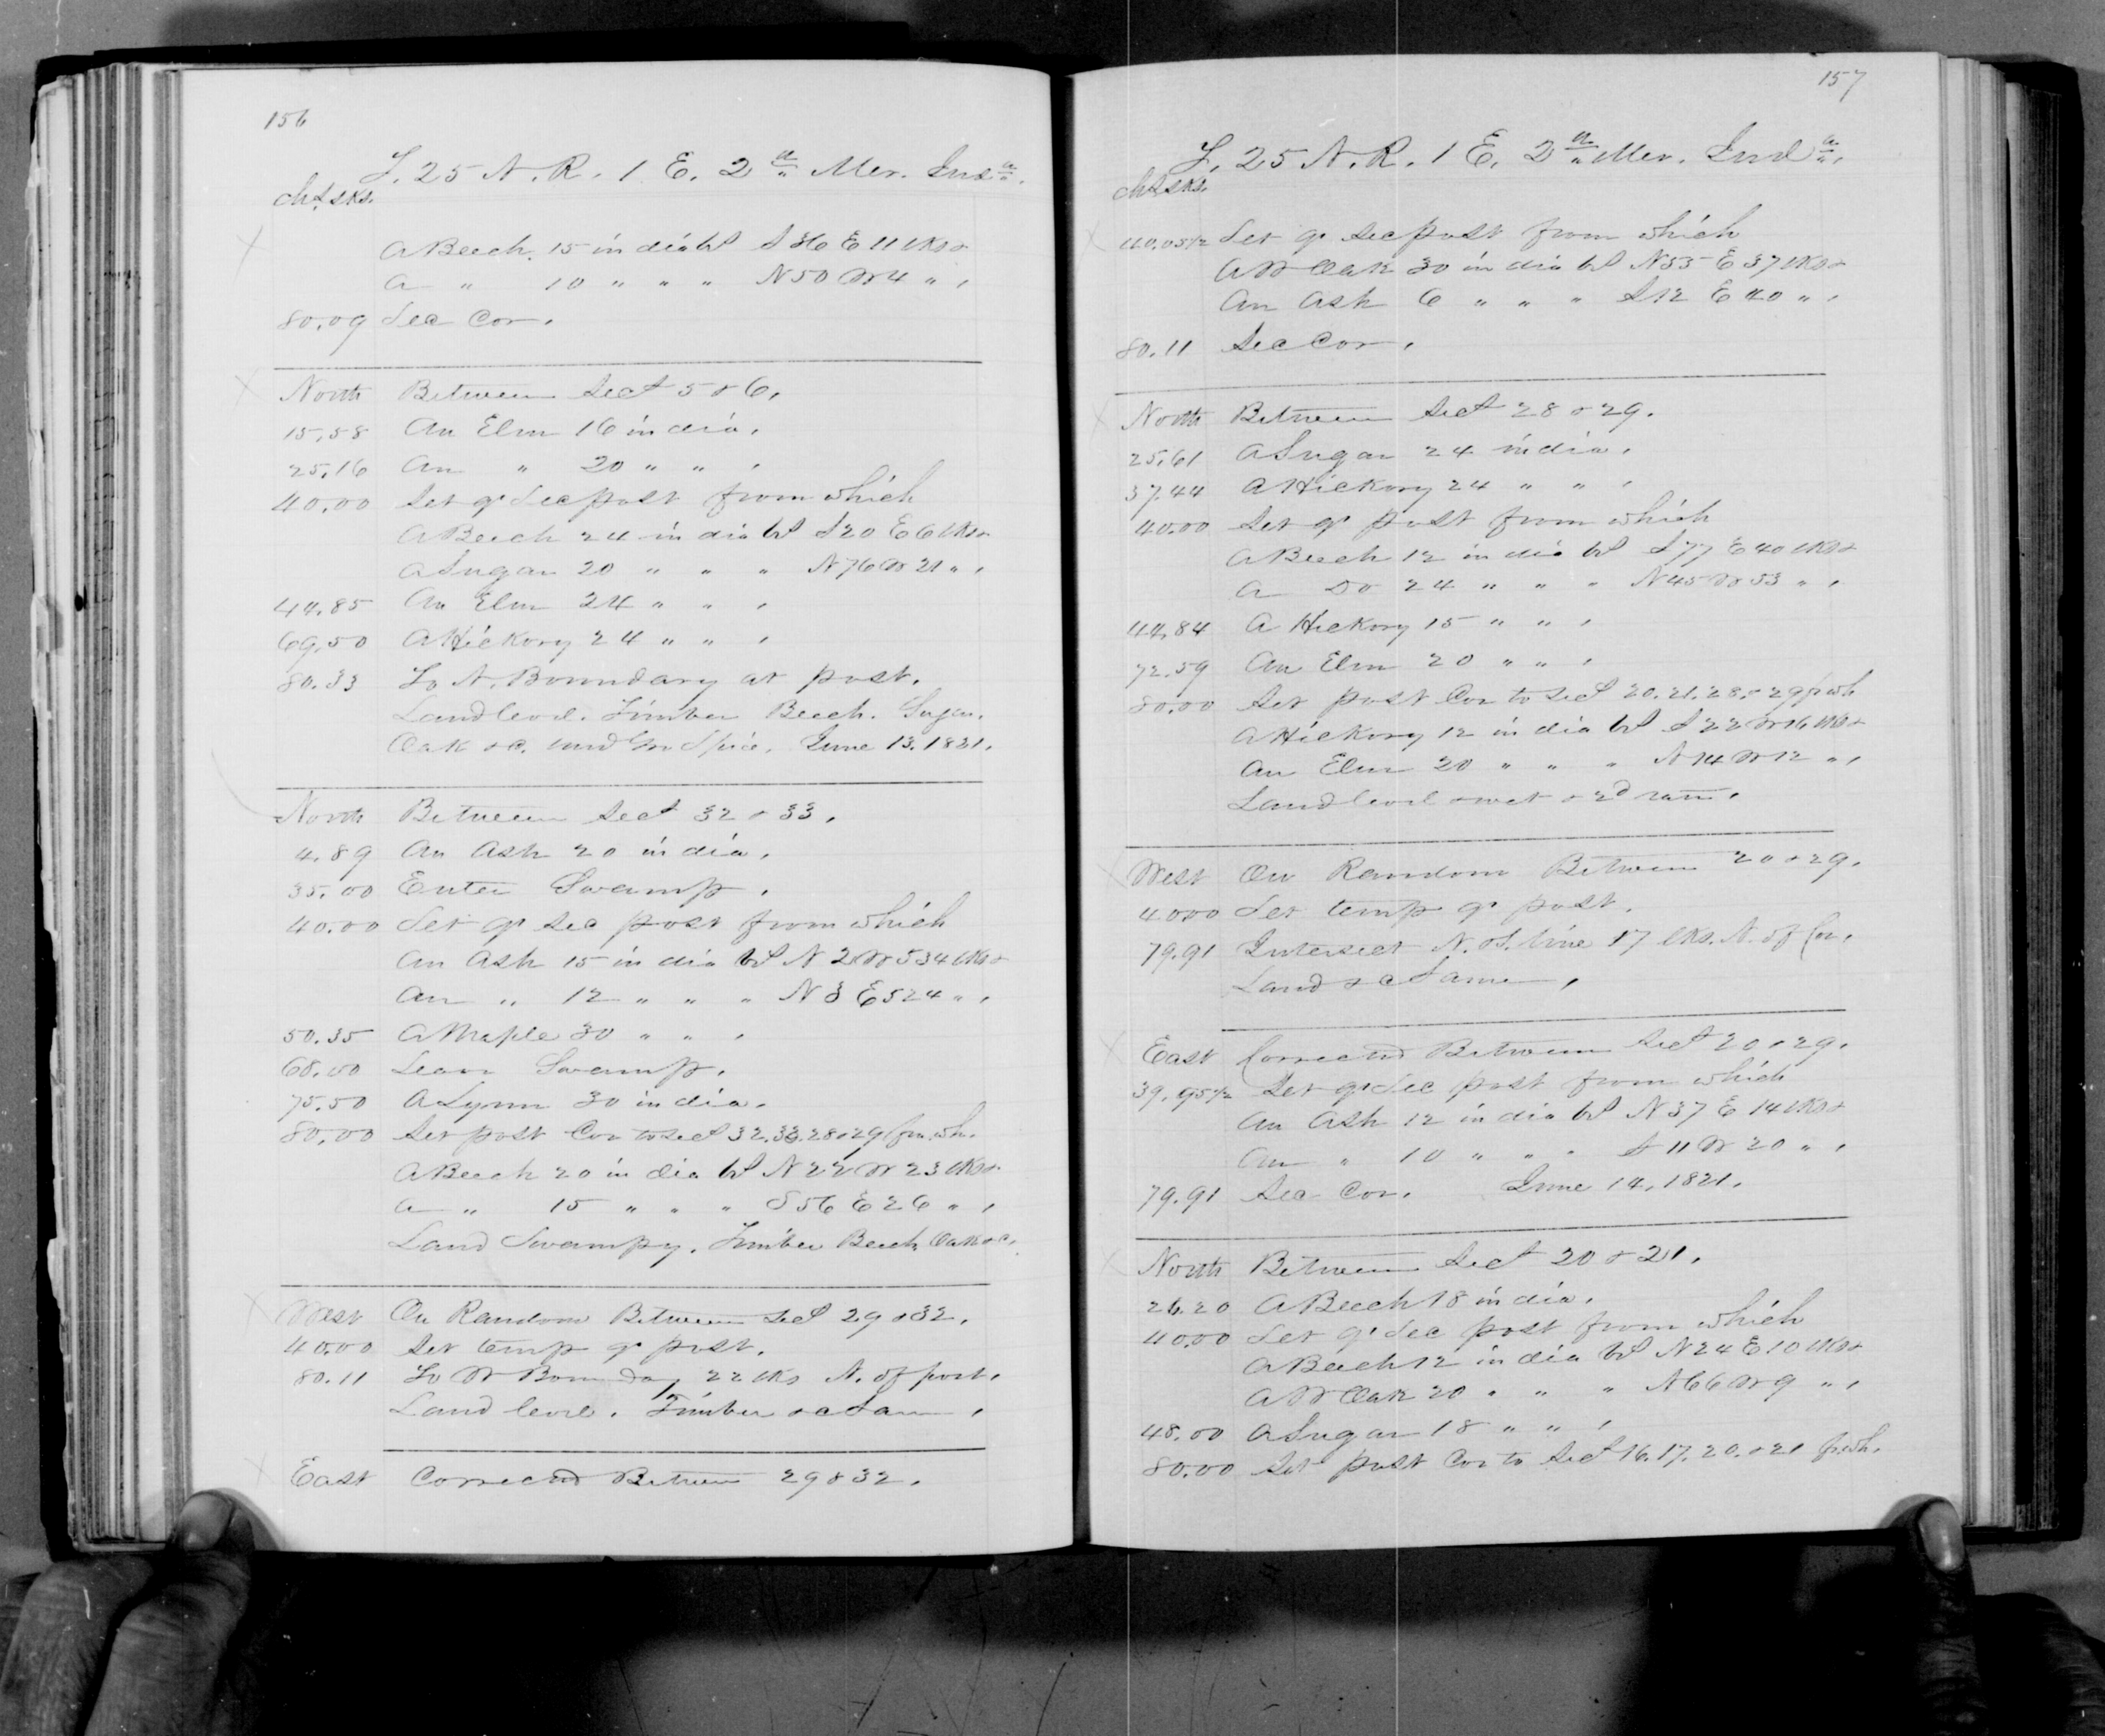 156
T. 25 N. R. 1 E. 2nd Mer. Inda.
chs lks.
A Beech. 15 in dia brs S 36 E 11 lks &
a " 10 " " " N 50 W 4 " ,
80.09 Sec Cor.
North Between Secs 5 & 6.
15.58 An Elm 16 in dia.
25.16 An " 20 " " ,
40.00 Set qr Sec post from which
A Beech 24 in dia brs S 20 E 6 lks &
a Sugar 20 " " " N 76 W 21 " ,
44.85 An Elm 24 " " ,
69.50 A Hickory 24 " " ,
80.33 To N. Boundary at post.
Land level. Timber Beech. Sugar.
Oak &c. undgro Spice. June 13. 1821.
North Between Secs 32 & 33.
4.89 An Ash 20 in dia.
35.00 Enter Swamp.
40.00 Set qr sec post from which
An Ash 15 in dia brs N 2 W 534 lks &
An " 12 " " " N 3 E 524 " ,
50.35 A Maple 30 " " ,
68.00 Leave Swamp.
75.50 A Lynn 30 in dia.
80.00 Set post Cor to secs 32.33.28 & 29 frm wh.
A Beech 20 in dia brs N 22 W 23 lks &
a " 15 " " " S 56 E 26 " ,
Land Swampy. Timber Beech, Oak &c.
West On Random Between Secs 29 & 32.
40.00 Set temp qr post.
80.11 To W Boundary 22 lks N. of post.
Land level. Timber &c Same,
East Corrected Between 29 & 32.
157
T. 25 N. R. 1 E. 2nd Mer. Inda.
chs lks.
40.05 1/2 Set qr sec post from which
A W Oak 30 in dia brs N 53 E 37 lks &
An Ash 6 " " " S 12 E 40 " ,
80.11 Sec Cor.
North Between Secs 28 & 29.
25.61 A Sugar 24 in dia.
37.44 A Hickory 24 " " ,
40.00 Set qr post from which
A Beech 12 in dia brs S 77 E 40 lks &
a Do 24 " " " N 45 W 53 " ,
44.84 A Hickory 15 " " ,
72.59 An Elm 20 " " ,
80.00 Set post Cor to secs 20.21.28. & 29 f wh
A Hickory 12 in dia brs S 22 W 16 lks &
An Elm 20 " " " N 14 W 12 " ,
Land level & wet & 2d rate.
West On Random Between 20 & 29.
40.00 Set temp qr post.
79.91 Intersect N. & S. line 17 lks. N. of Cor.
Land &c Same,
East Corrected Between Secs 20 & 29.
39.95 1/2 Set qr Sec post from which
An Ash 12 in dia brs N 37 E 14 lks &
An " 10 " " " S 11 W 20 " ,
79.91 Sec Cor. June 14. 1821.
North Between Secs 20 & 21.
26.20 A Beech 18 in dia.
40.00 Set qr Sec post from which
A Beech 12 in dia brs N 24 E 10 lks &
A W Oak 20 " " " N 66 W 9 " ,
48.00 A Sugar 18 " " ,
80.00 Set post Cor to Secs 16.17.20. & 21 f wh.